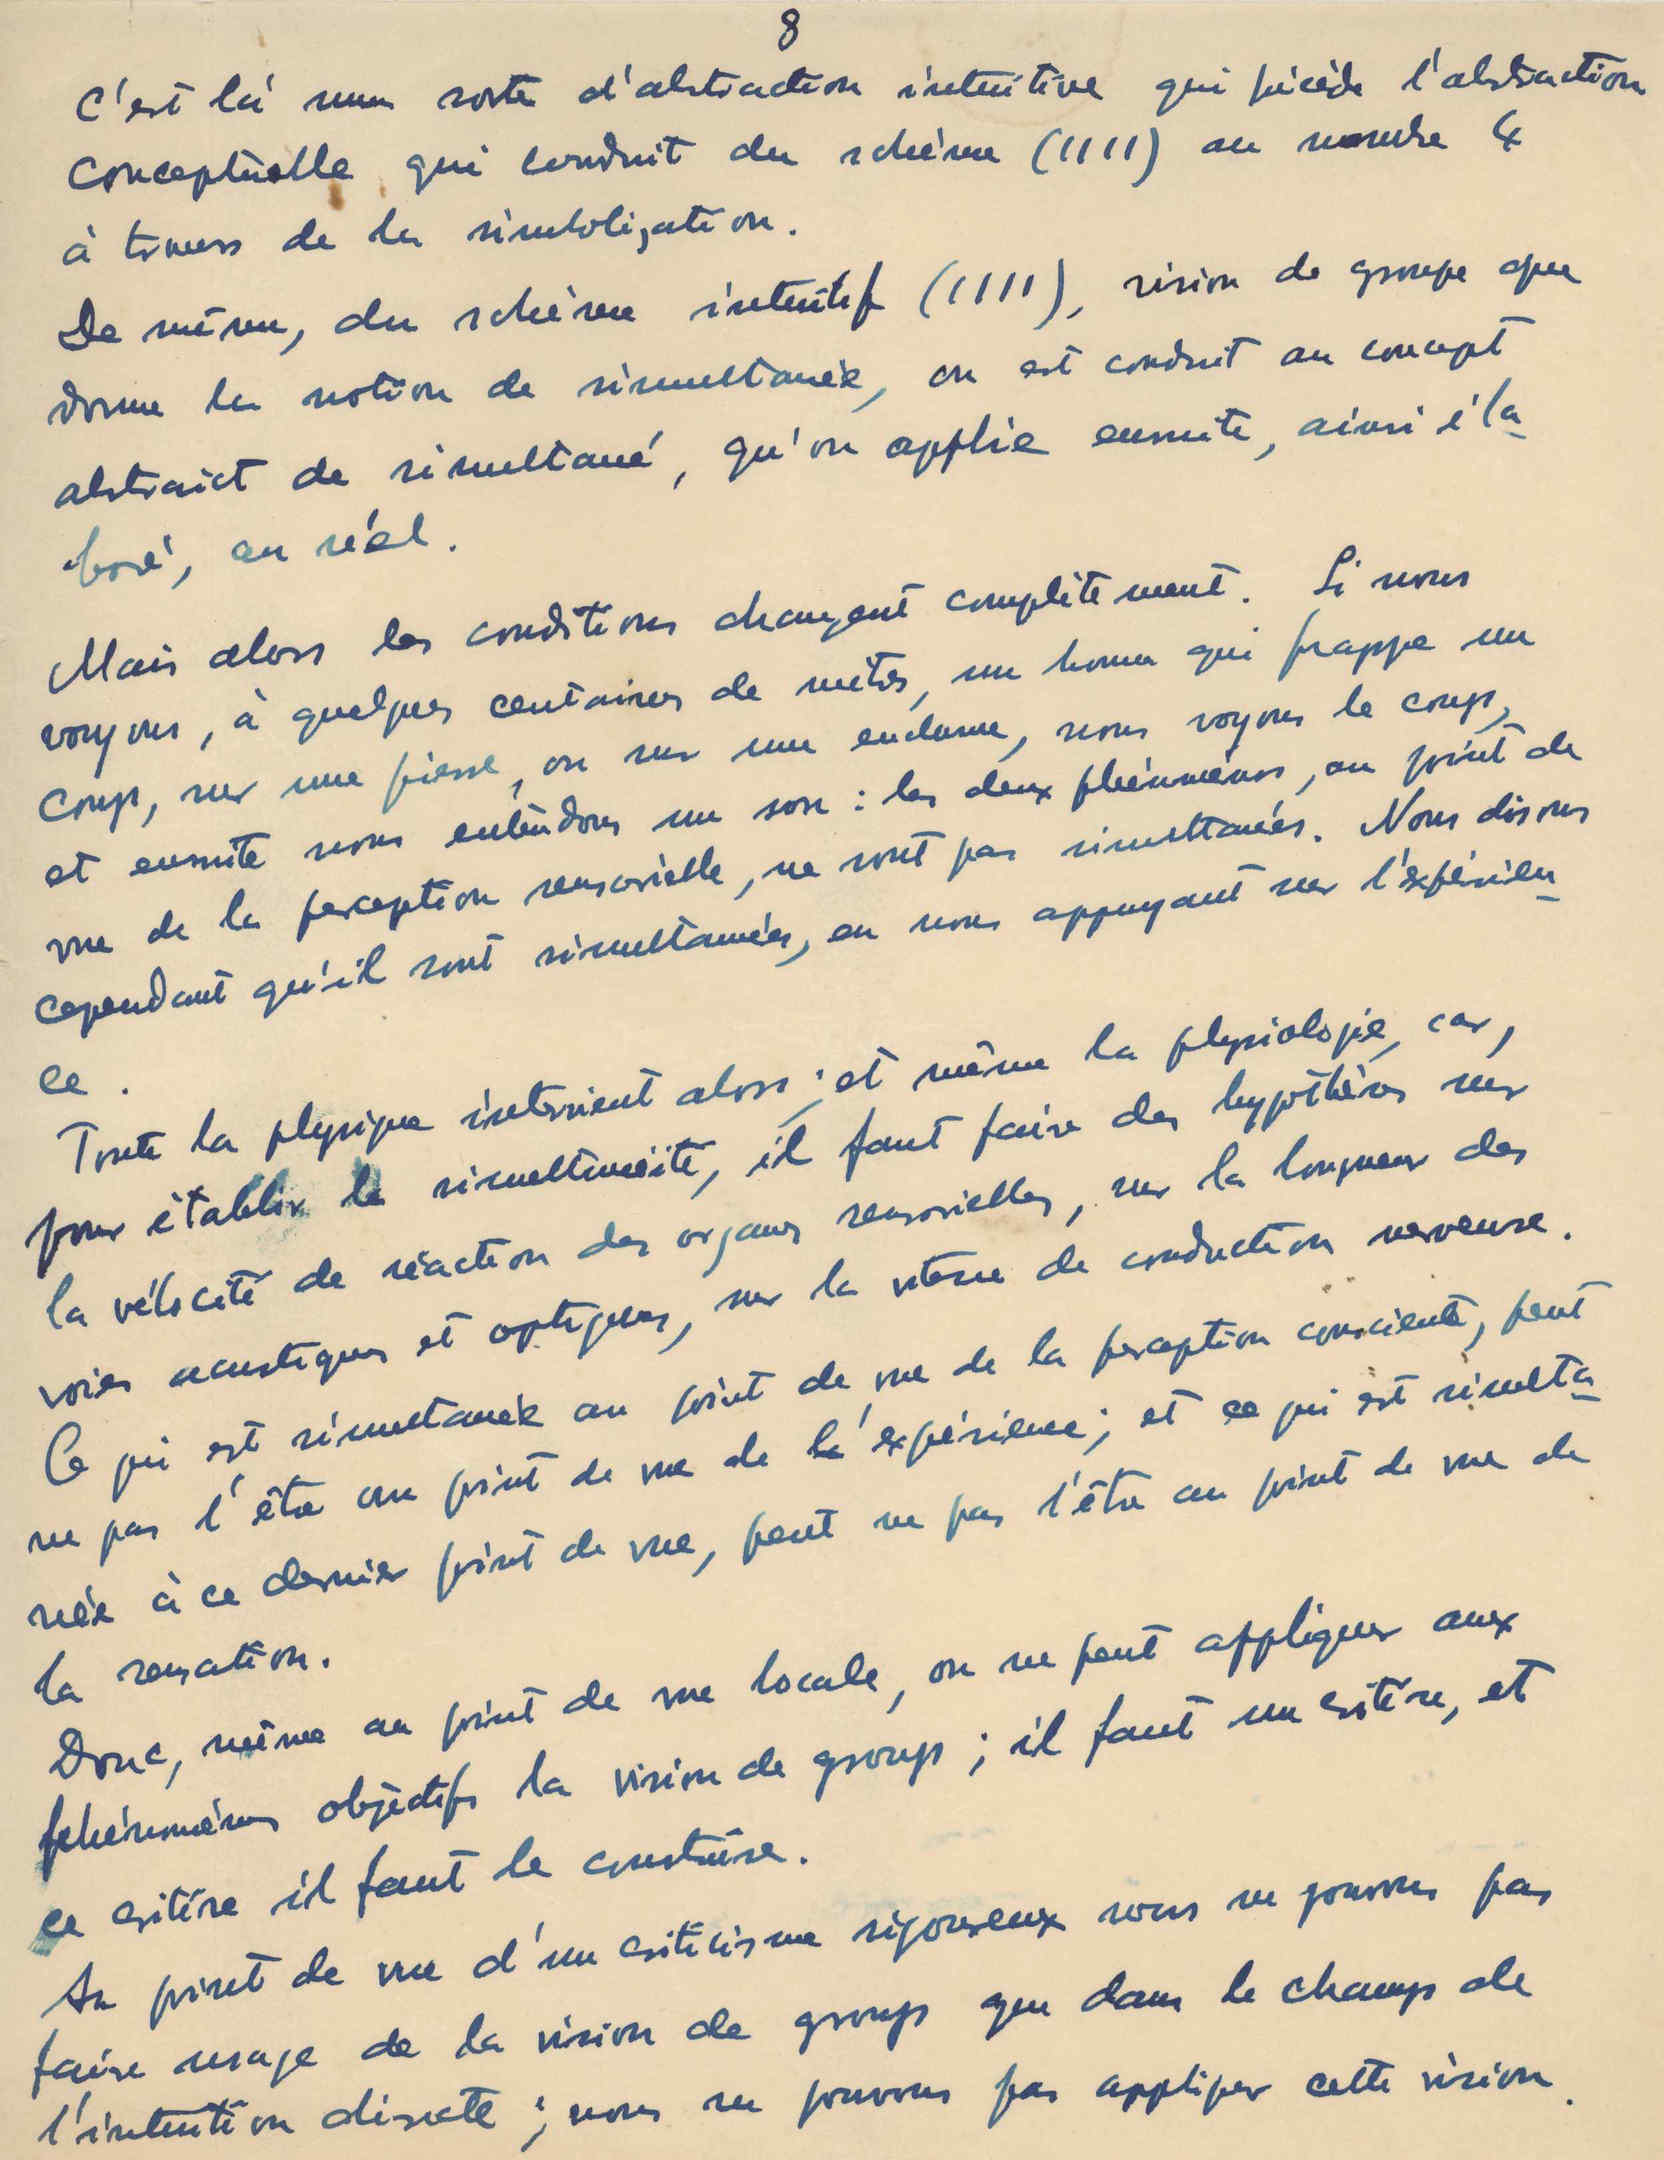 8
C'est là une sorte d'abstraction intuitive qui précède l'abstraction
conceptuelle qui conduit du schème (IIII) au nombre 4
à travers de la simbolisation.
De même, du schème intuitif (IIII), vision de groupe que
donne la notion de simultanée, on est conduit au concept
abstraict de simultané, qu'on applie ensuite, ainsi éla-
boré, au réel.
Mais alors les conditions changent complètement. Si nous
voyons, à quelques centaines de mètres, un home qui frappe un
coup, sur une pierre, ou sur une enclume, nous voyons le coup,
et ensuite nous entendons un son : les deux phénomènes, au point de
vue de la perception sensorielle, ne sont pas simultanées. Nous disons
cependant qu'il sont simultanées, en nous appuyant sur l'expérien-
ce.
Toute la physique intervient alors ; et même la physiologie, car,
pour établir la simultanéité, il faut faire des hypothèses sur
la vélocité de réaction des organes sensorielles, sur la longueur des
voies acustiques et optiques, sur la vitesse de conduction nerveuse.
Ce qui est simultanée au point de vue de la perception consciente, peut
ne pas l'être au point de vue de l'expérience ; et ce qui est simulta-
née à ce dernier point de vue, peut ne pas l'être au point de vue de
la sensation.
Donc, même au point de vue locale, on ne peut appliquer aux
phénomènes objectifs la vision de group ; il faut un critère, et
ce critère il faut le construire.
Au point de vue d'un criticisme rigoureux nous ne pouvons pas
faire usage de la vision de group que dans le champ de
l'intuition discrète ; nous ne pouvons pas appliquer cette vision